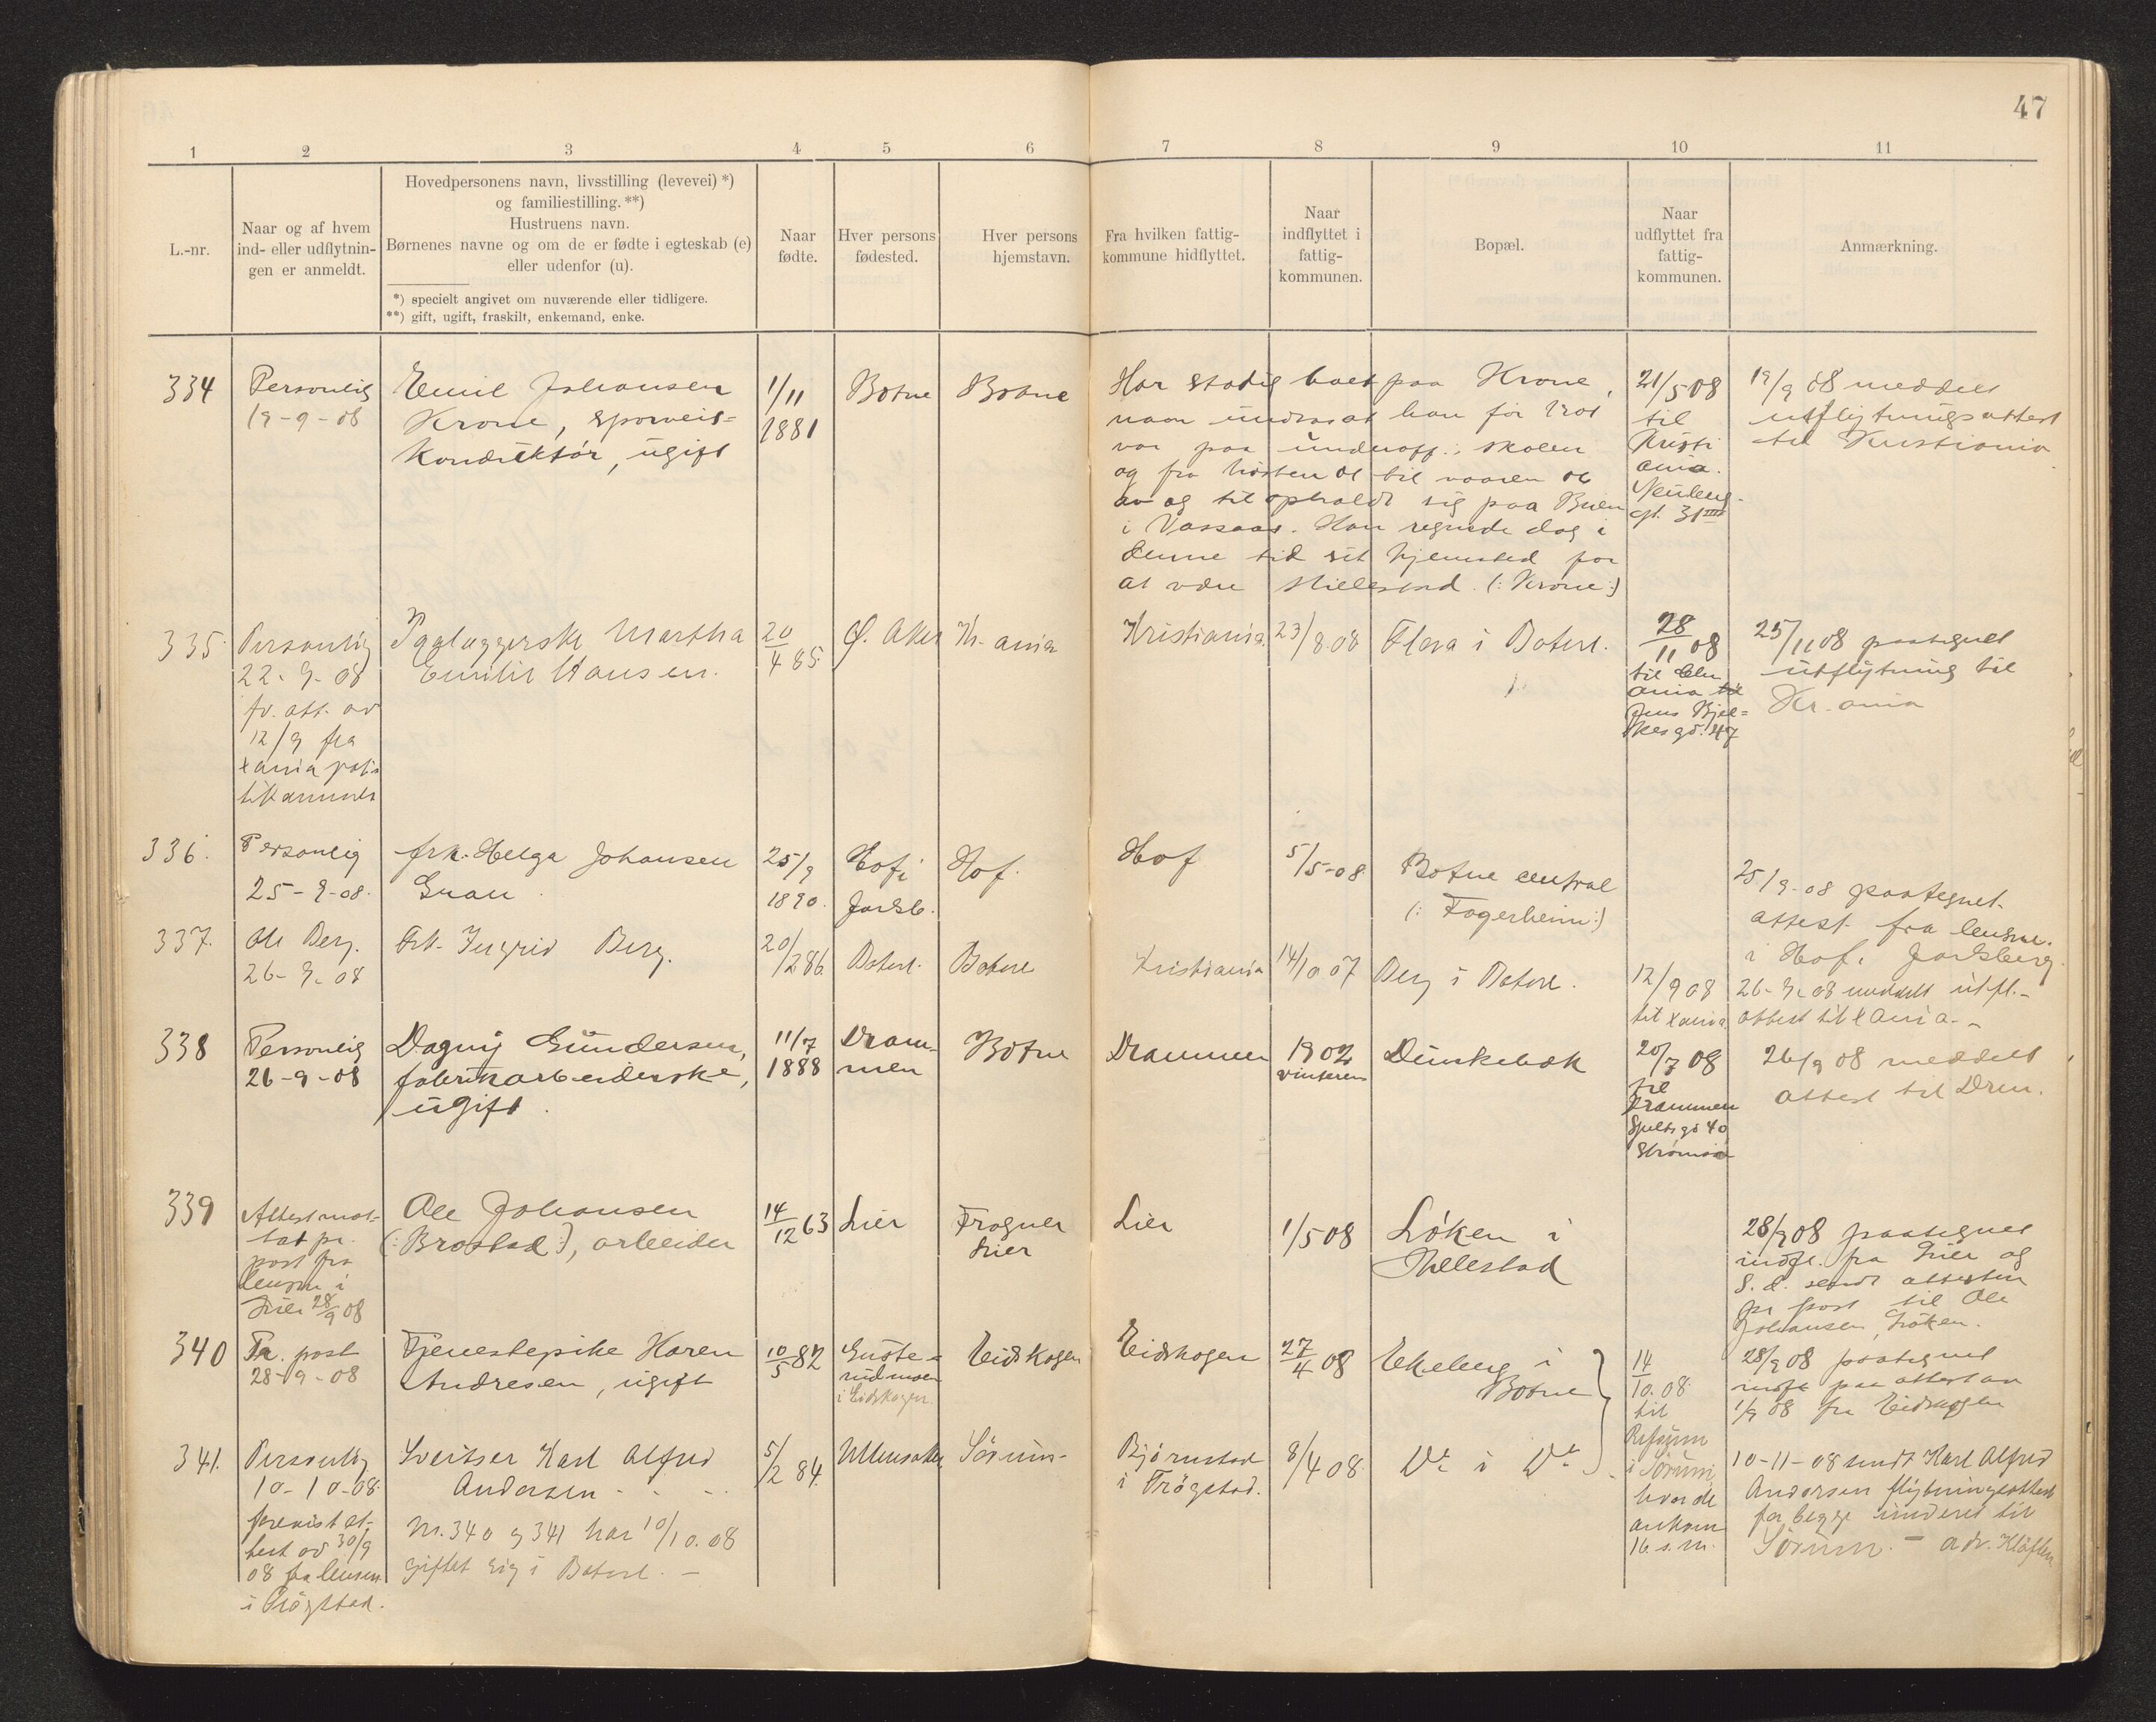 47
1 2 3 4 5 6 7 8 9 10 11
L.-nr.
Naar og af hvem
ind- eller udflytnin-
gen er anmeldt.
Hovedpersonens navn, livsstilling (levevei) *)
og familiestilling. **)
Hustruens navn.
Børnenes navne og om de er fødte i egteskab (e)
eller udenfor (u).
*) specielt angivet om nuværende eller tidligere.
**) gift, ugift, fraskilt, enkemand, enke.
Naar
fødte.
Hver persons
fødested.
Hver persons
hjemstavn.
Fra hvilken fattig-
kommune hidflyttet.
Naar
indflyttet i
fattig-
kommunen.
Bopæl.
Naar
udflyttet fra
fattig-
kommunen.
Anmærkning.
334
Personlig
19-9-08
Emil Johansen
Krone, sporveis=
Konduktør, ugift
1/11
1881
Botne
Botne
Har stadig boet paa Krone,
naar undtas at han før 1901
var paa underoff. skolen
og fra høsten 01 til vaaren 06
av og til opholdt sig paa Buen
i Vassaas. Han regnede dog i
denne tid sit hjemsted for
at være Hillestad (: Krone :)
21/5 08
til
Kristi
ania.
Neuberg-
gt. 31 III
19/9 08 meddelt
utflytningsattest
til Kristiania
335
Personlig
22-9-08
fv. att. av
12/9 fra
Xania poli-
tikammer
Paalæggerske Martha
Emilie Hansen.
20/4 85.
Ø. Aker
Kr.ania
Kristiania.
23/8.08
Flora i Botne.
28/11 08
til Chr
ania
Jens Bjel=
kesgd. 47
25/11 08 paategnet
utflytning til
Kr.ania
336.
Personlig
25-9-08.
frk. Helga Johansen
Gran
25/9
1890.
Hof i
Jarlsb.
Hof.
Hof
5/5-08
Botne central
(: Fagerheim :)
25/9-08 paategnet
attest fra lensm.
i Hof, Jarlsberg.
337.
Ole Berg.
26-9-08
Frk. Ingrid Berg.
20/2 86
Botne.
Botne
Kristiania
14/10 07
Berg i Botne.
12/9 08
til Xania
26-9-08 meddelt utfl.-
attest til Xania.-
338
Personlig
26-9-08
Dagny Gundersen,
fabrikarbeiderske,
ugift.
11/7
1888
Dram-
men
Botne
Drammen
1902
vinteren
Dunkebæk
20/7 08
til
Drammen
gd 40
Strømsø
26/9 08 meddelt
attest til Drm.
339
Attest mot-
tat pr.
post fra
lensm i
Lier 28/9 08
Ole Johansen
(: Brastad :), arbeider
14/12 63
Lier
Frogner
Lier
Lier
1/5 08
Løken i
Hillestad
28/9 08 paategnet
indfl. fra Lier og
s. d. sendt attesten
pr post til Ole
Johansen, Løken.
340
Pr. post
28-9-08
Tjenestepike Karen
Andresen, ugift
10/5 82
i Eidskogen.
Eidskogen
Eidskogen
27/4 08
Ekeberg i
Botne
14/10.08
til
i Sørum,
hvor de
ankom
16. s.m.
28/9 08 paategnet
indfl paa attest av
1/9 08 fra Eidskogen
341.
Personlig
10-10-08.
forevist at-
test av 30/9
08 fra lensm.
i Trøgstad.
Sveitser Karl Alfred
Andersen
Nr. 340 og 341 har 10/10.08
giftet sig i Botne. –
5/2 84.
Ullensaker
Sørum
Bjørnstad
i Trøgstad.
8/4 08.
Do i Do
10-11-08 sendt Karl Alfred
Andersen flytningsattest
for begge
Sørum. – adr. Kløften